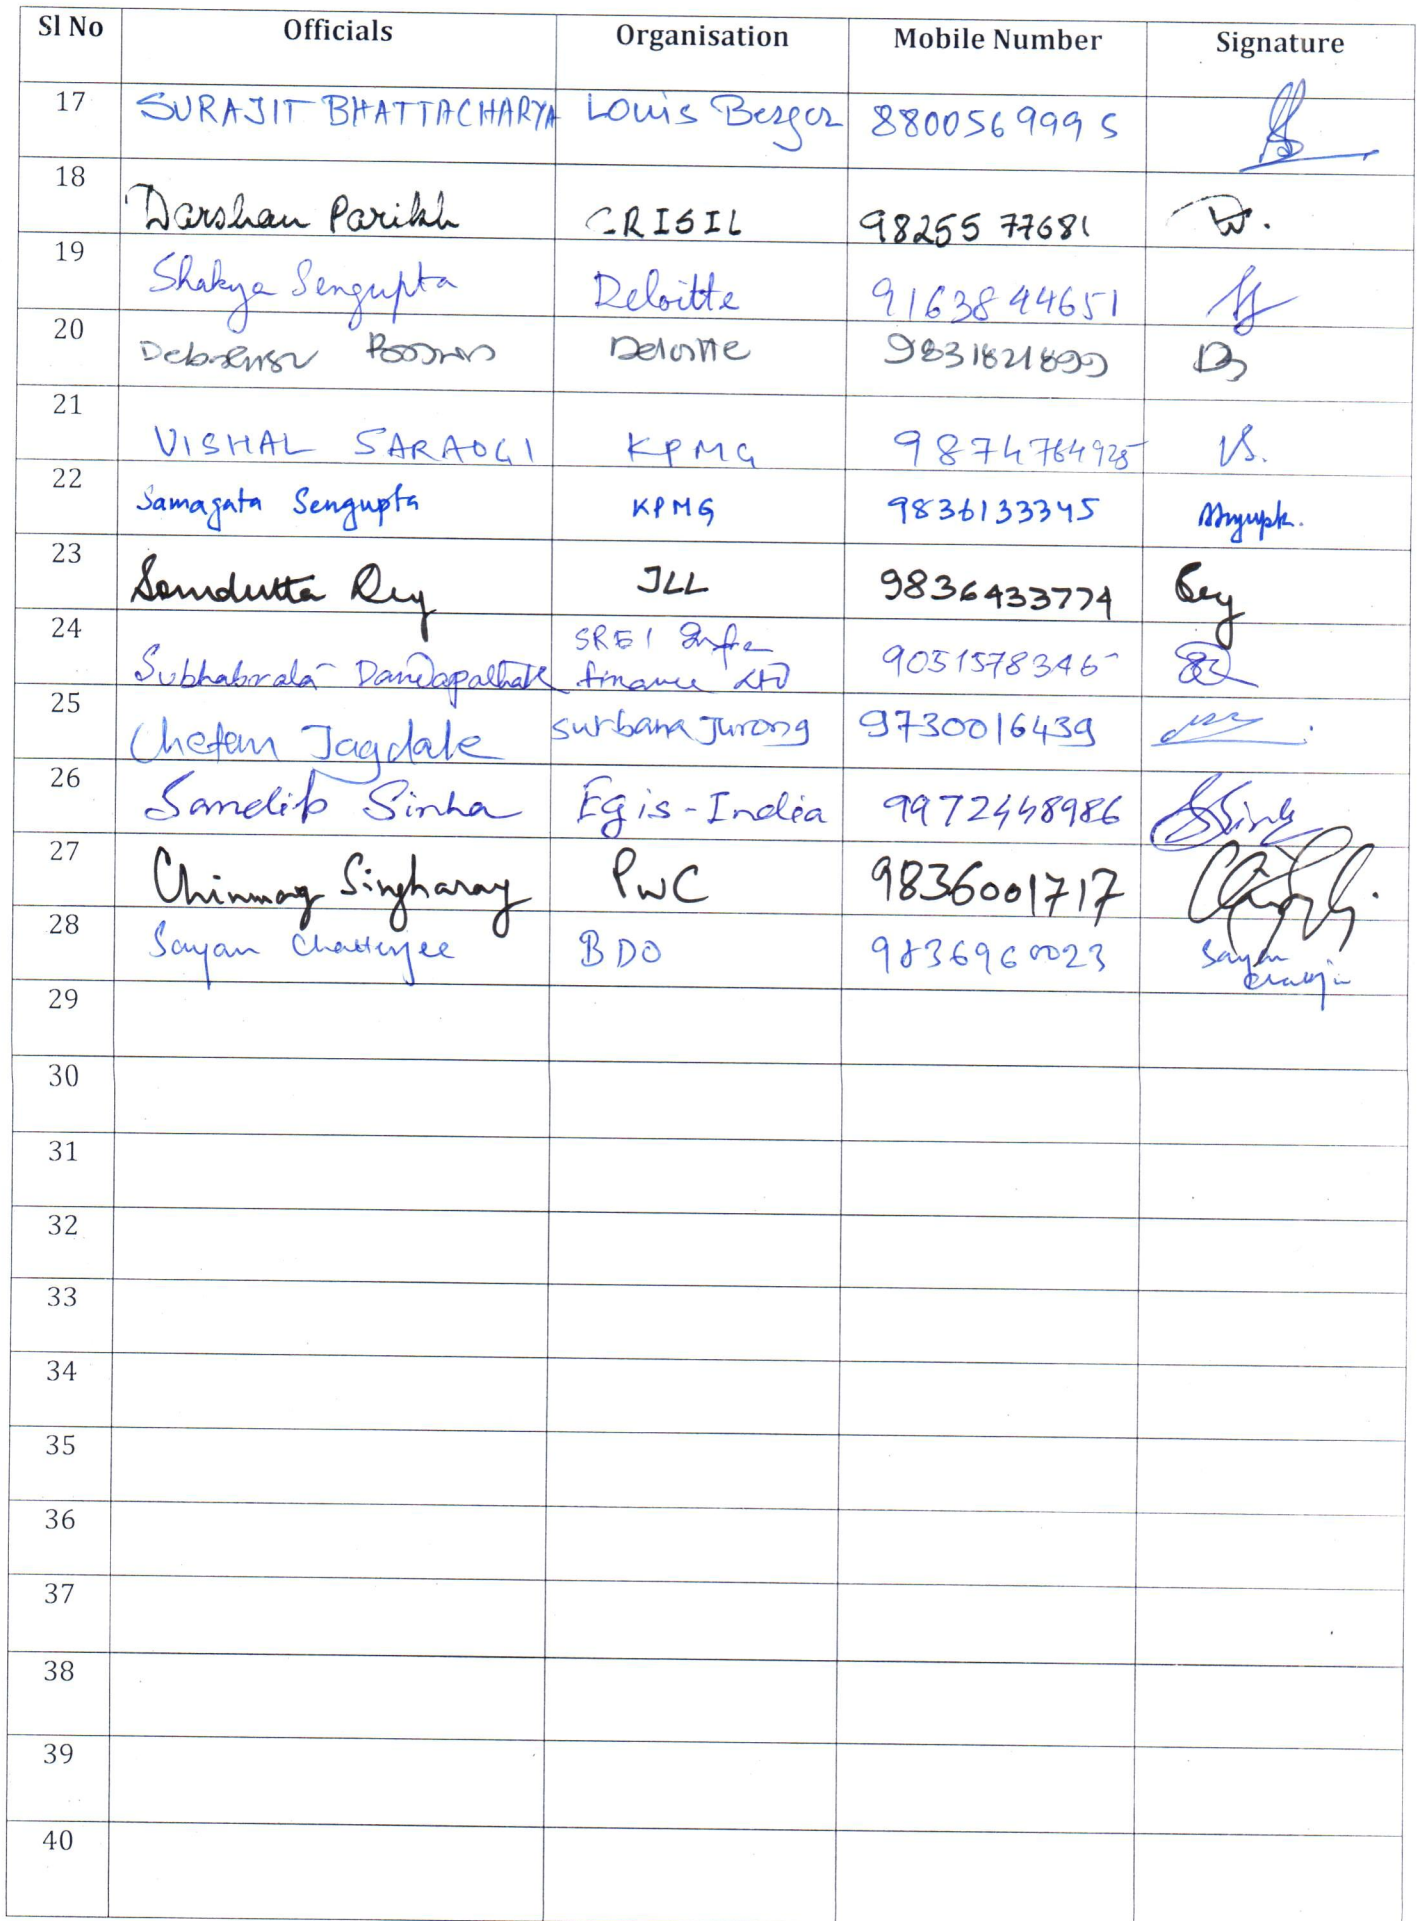 Sl No Officials Organisation Mobile Number Signature
17 SURAJIT BHATTACHARYA Louis Berger 8800569995
18 Darshan Parikh CRISIL 98255 77681
19 Shakya Sengupta Deloitte 9163844651
20 Deloitte
21 VISHAL SARAOGI KPMG 9874764925 VS.
22 Samagata Sengupta KPMG 9836133345
23 Somdutta Dey JLL 9836433774 Dey
24 SREI Infra
Subhabrata finance Ltd 9051578346
25 Chetan Jagdale Surbana Jurong 9730016439
26 Sandip Sinha Egis-India 9972448986 SSinha
27 Chinmay Singharay PwC 9836001717
28 Sayan Chatterjee BDO 9836960023 Sayan
29
30
31
32
33
34
35
36
37
38
39
40